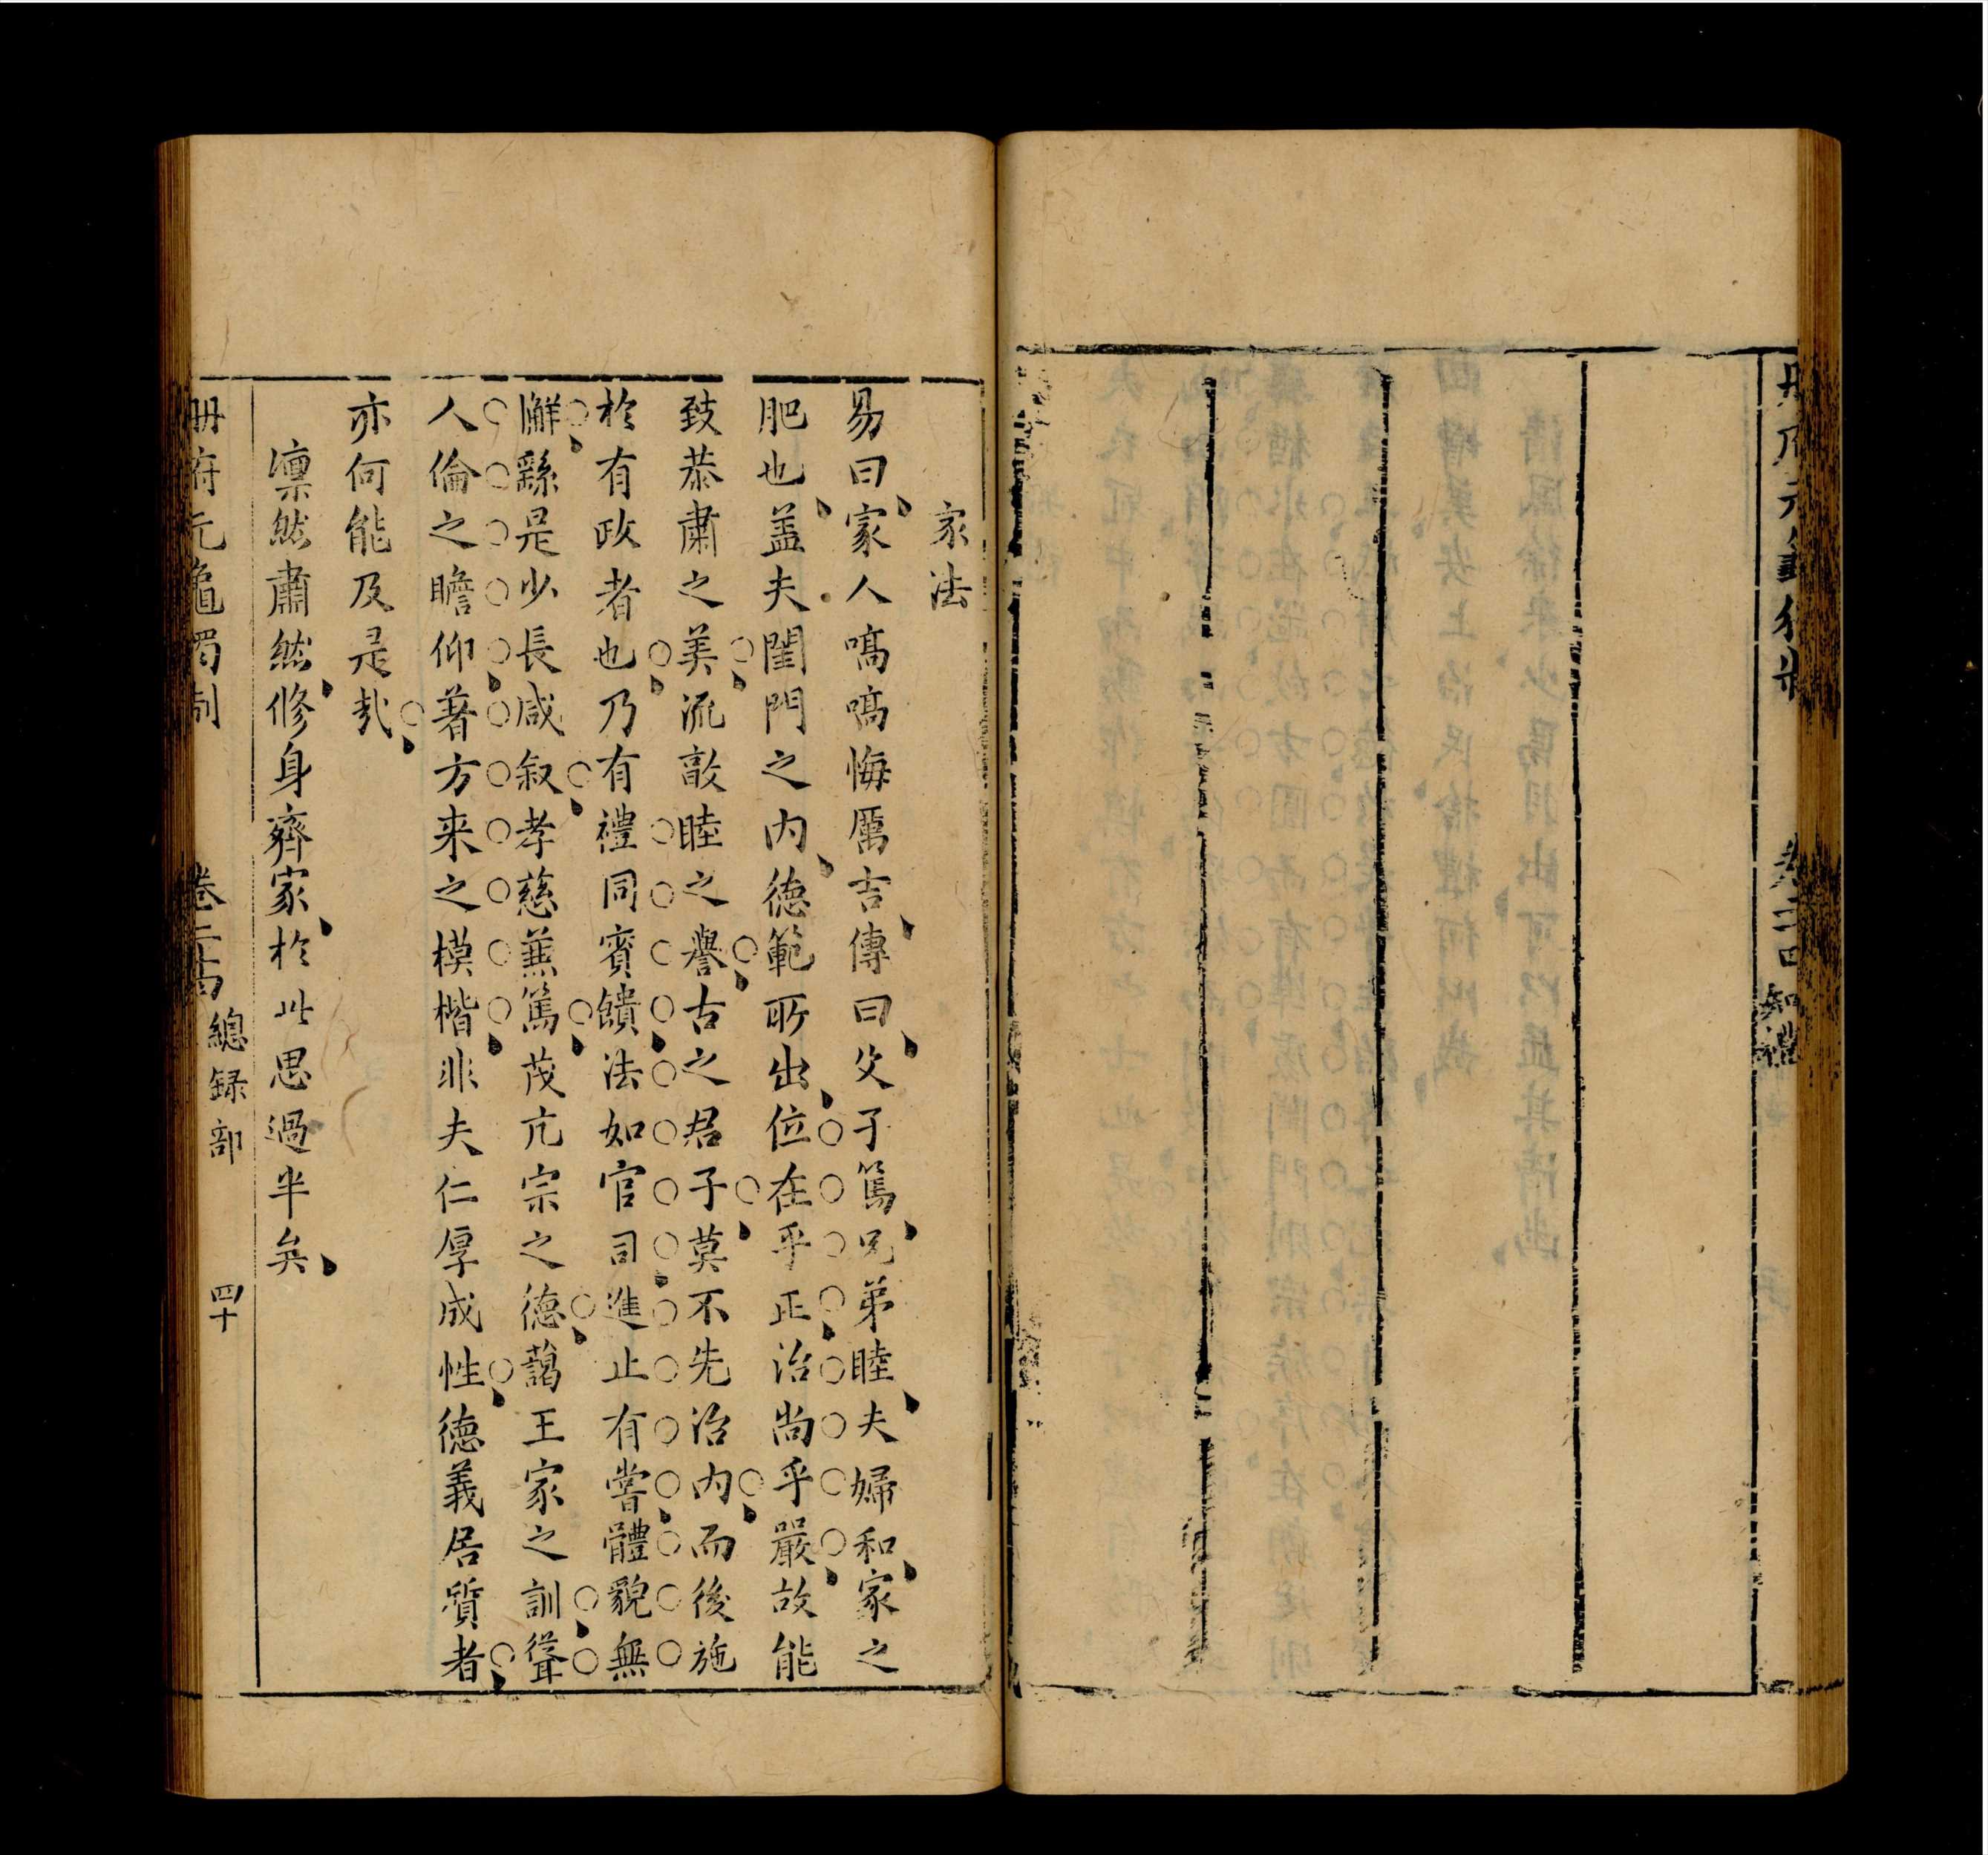 知禮
家法
易曰家人嗃嗃悔厲吉傳曰父子篤兄弟睦夫婦和家之
肥也盖夫閨門之内德範所出位在乎正治尚乎嚴故能
致恭肅之美流敦睦之譽古之君子莫不先治内而後施
於有政者也乃有禮同賓饋法如官司進止有嘗體貌無
懈繇是少長咸叙孝慈蕪篤茂亢宗之德藹王家之訓聳
人倫之瞻仰著方来之模楷非夫仁厚成性德義居質者
亦何能及是㢤
凛然肅然修身齊家於此思過半矣
册府元龜獨制
卷二十四
總録部
四十